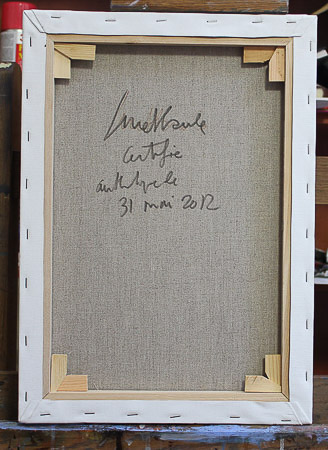 certifie
authentique
31 mai 2012